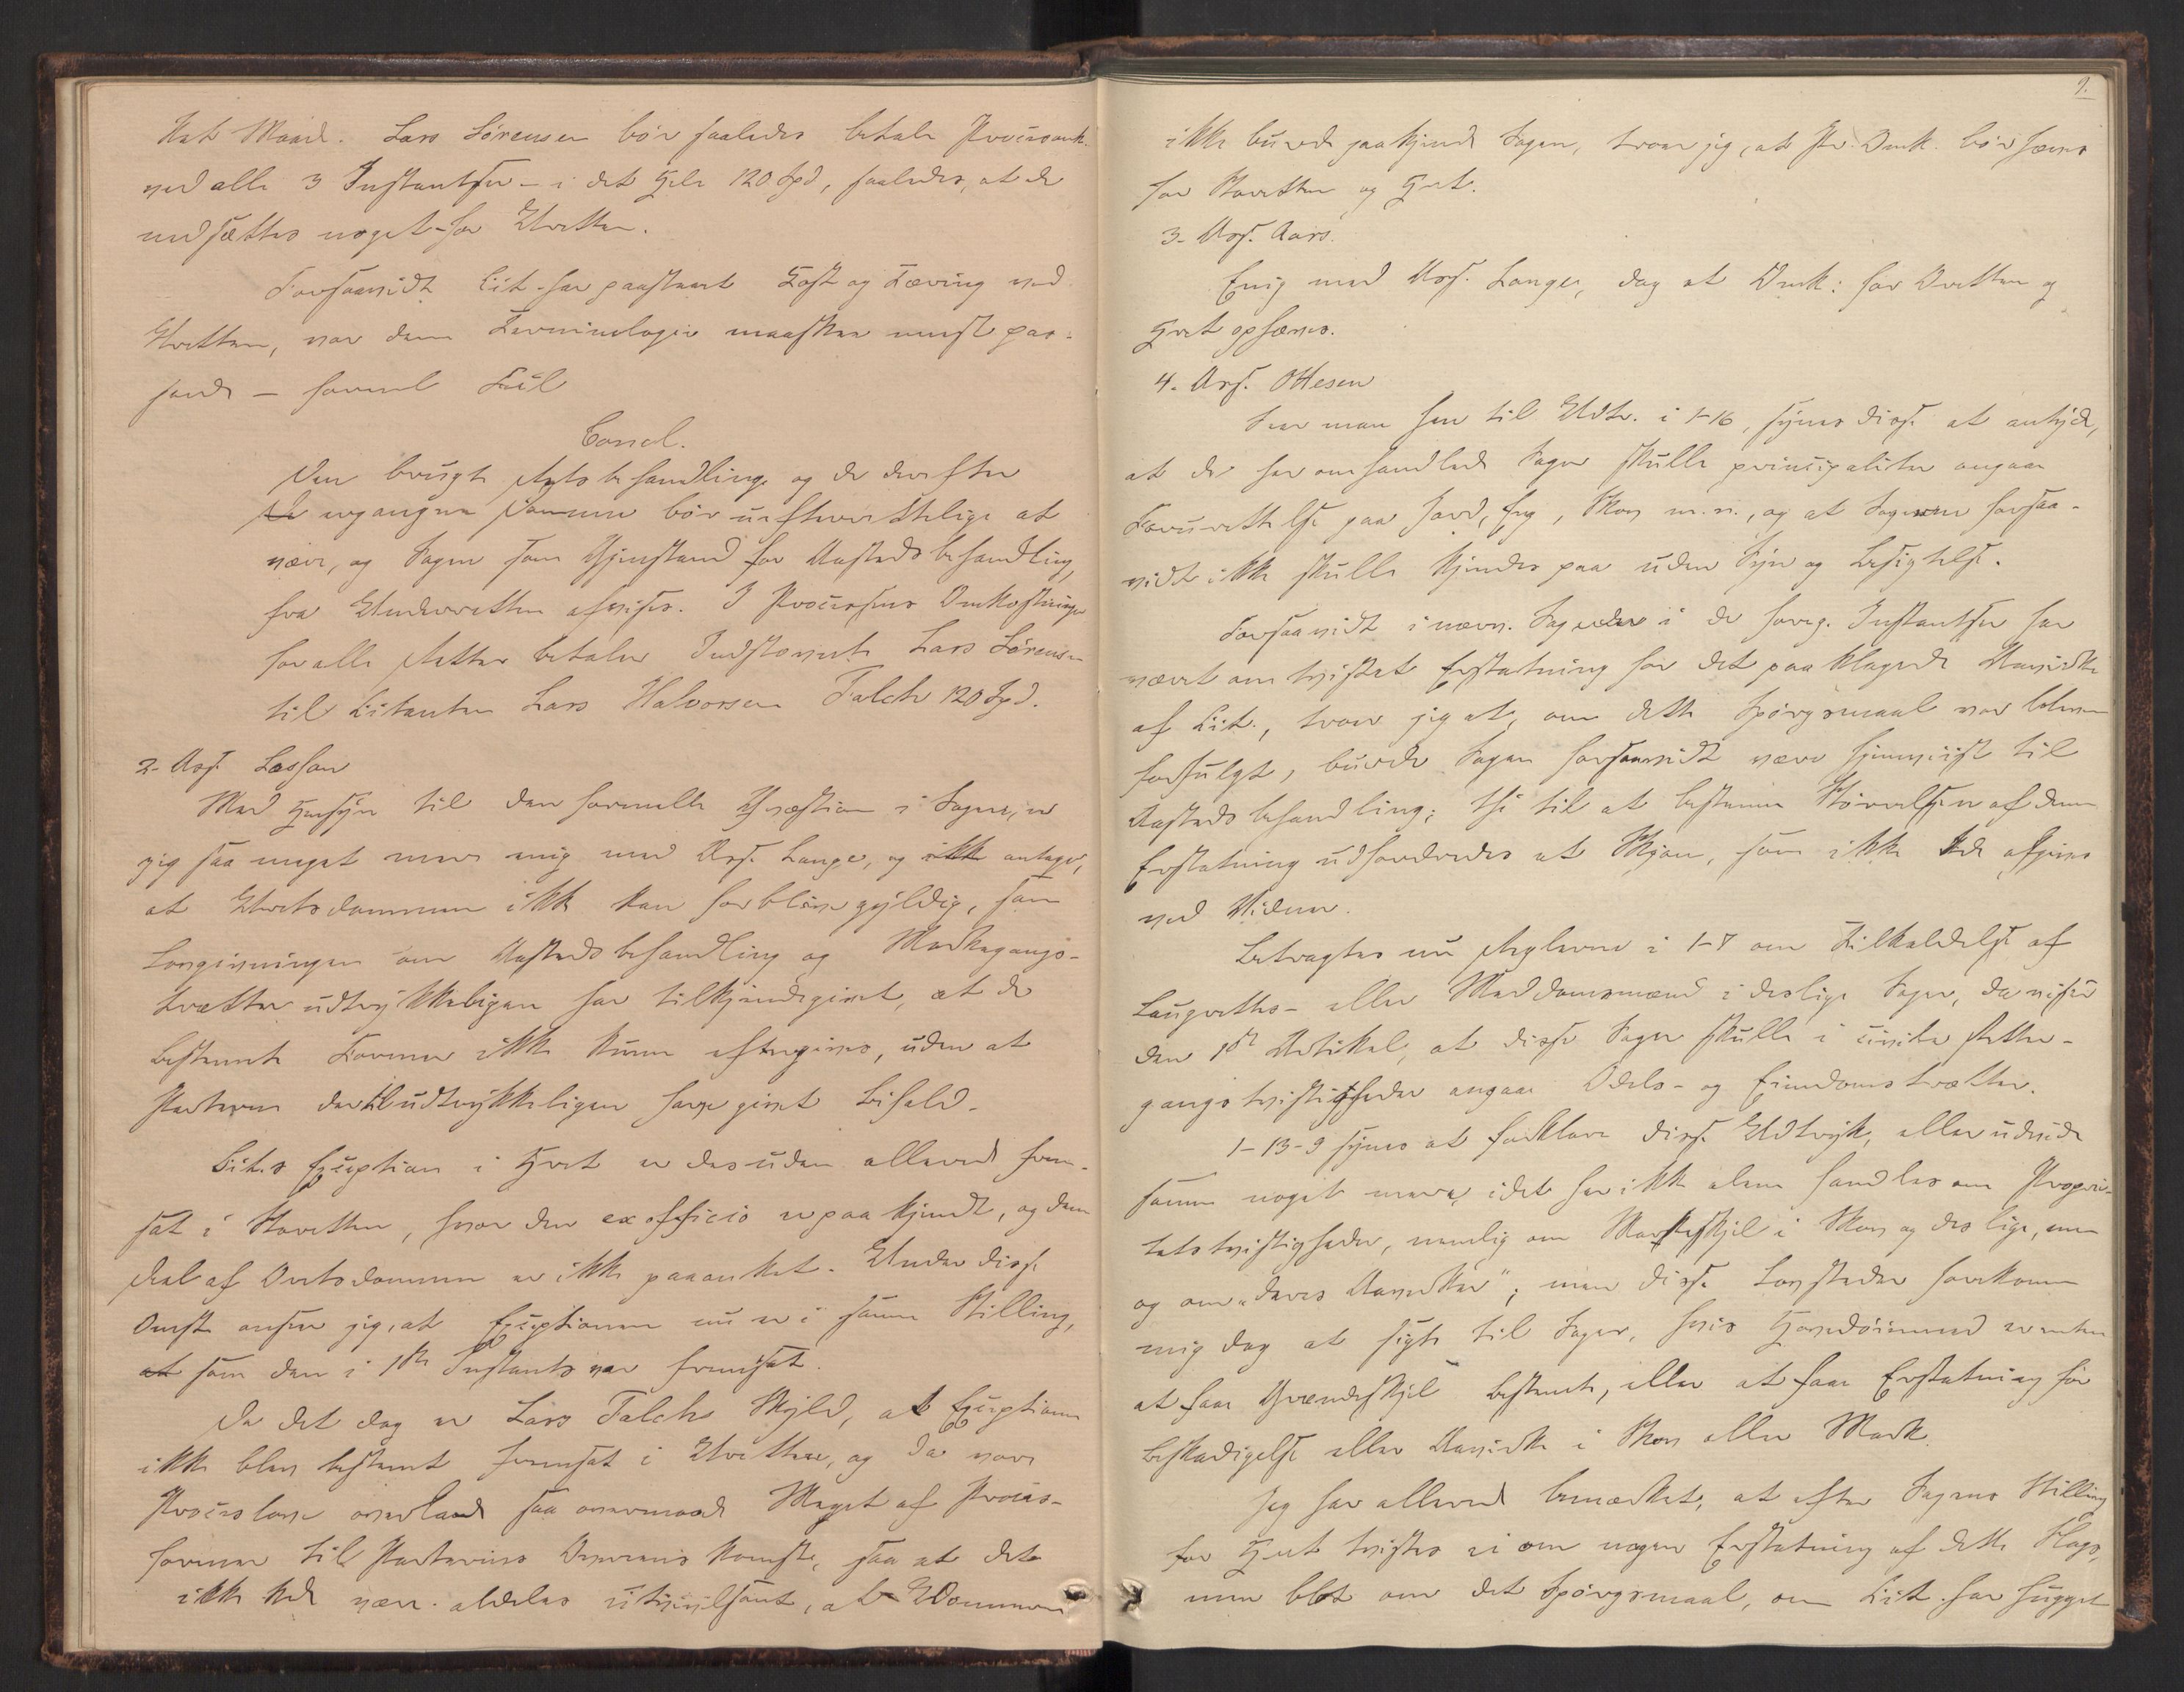 Ret Maade. Lars Sörensen bör saaledes betale Procesomk.
ved alle 3 Instantser – i det Hele 120 Spd, saaledes, at de
nedsættes noget for Uretten.
Forsaavidt Cit. har paastaaet Kost og Tæring ved
Uretten, var den Terminologie maaskee mest pas-
sende – formel Feil
Concl.
Den brugte Retsbehandling og de derefter
De ergangne Domme bör uefterrettelige at
være, og Sagen som Gjenstand for Aastedsbehandling,
fra Underretten afvises. I Processens Omkostninger
for alle Retter betaler Indstevnte Lars Sörensen
til Citanten Lars Halvorsen Falch 120 Spd.
2. Ass. Lasson
Med Hensyn til den formelle Qvæstion i Sagen, er
jeg saa meget mere enig med Ass. Lange, og ikke antager,
at Uretsdommen ikke kan forblive gyldig, som
Lovgivningen om Aastedsbehandling og Markegangs-
trætter udtrykkeligen har tilkjendegivet, at de
bestemte Former ikke kunne eftergives, uden at
Parterne dertil udtrykkeligen have givet Bifald.
Cit.s Exception i Hret er desuden allerede frem-
sat i Stevretten, hvor den ex officio er paakjendt, og denne
Deel af Oretsdommen er ikke paaanket. Under disse
Omst. anseer jeg, at Exceptionen nu er i samme Stilling,
at som den i 1ste Instants var fremsat.
Da det dog er Lars Falchs Skyld, at Exceptionen
ikke blev bestemt fremsat i Uretten, og da vore
Proceslove overlade saa overmaade Meget af Proces-
former til Parternes Overeenskomst, saa at det
ikke kan være aldeles utvivlsomt, at UDommeren
9.
ikke burde paakjende Sagen, troer jeg, at Pr. Omk. bör hæves
for Stevretten og Hret.
3. Ass. Aars.
Enig med Ass. Lange, dog at Omk: for Oretten og
Hret ophæves.
4. Ass. Ottesen
Seer man hen til Udtr. i 1-16, synes disse at antyde,
at de her omhandlede Sager skulle principaliter angaae
Forurettelse paa Jord, Eng, Skov m.v., og at Sagerne forsaa-
vidt ikke skulle kjendes paa uden Syn og Besigtelse.
Forsaavidt i nærv. Sag der i de foreg. Instantser har
været omtvistet Erstatning for det paaklagede Uanvirke
af Cit., troer jeg at, om dette Spörgsmaal var bleven
forfulgt, burde Sagen forsaavidt være hjemviist til
Aastedsbehandling; thi til at bestemme Störrelsen af denne
Erstatning udfordredes et Skjön, som ikke kan afgives
ved Vidner.
Betragtes nu Reglerne i 1-7 om Tilkaldelse af
Laugretts- eller Meddomsmænd i deslige Sager, da viser
den 1ste Artikel, at disse Sager skulle i civile Retter-
gangstvistigheder angaae Odels- og Eiendomstrætter.
1-13-9 synes at forklare disse Udtryk, eller udvide
samme noget mere, idet her ikke alene handles om Proprie-
tetstvistigheder, nemlig om Markeskjel i Skov og deslige, men
og om "deres Uanvirker"; men disse Lovsteder forekomme
mig dog at sigte til Sager, hvis Hovedöiemed er enten
at faae Grændseskjel bestemt, eller at faae Erstatning for
Beskadigelse eller Uanvirke i Skov eller Mark.
Jeg har allerede bemærket, at efter Sagens Stilling
for Hret tvistes ei om nogen Erstatning af dette Slags,
men blot om det Spörgsmaal, om Cit. har hugget